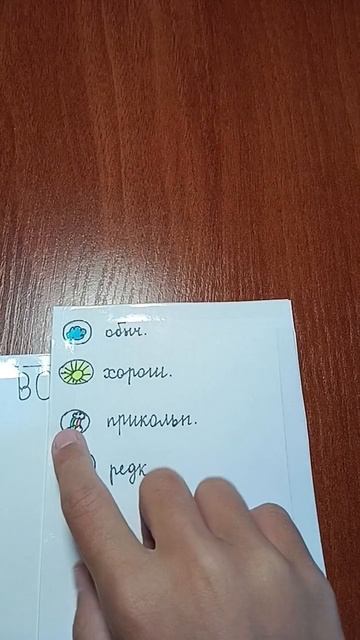 обыч.
хорош.
ВС
прикольн.
редк